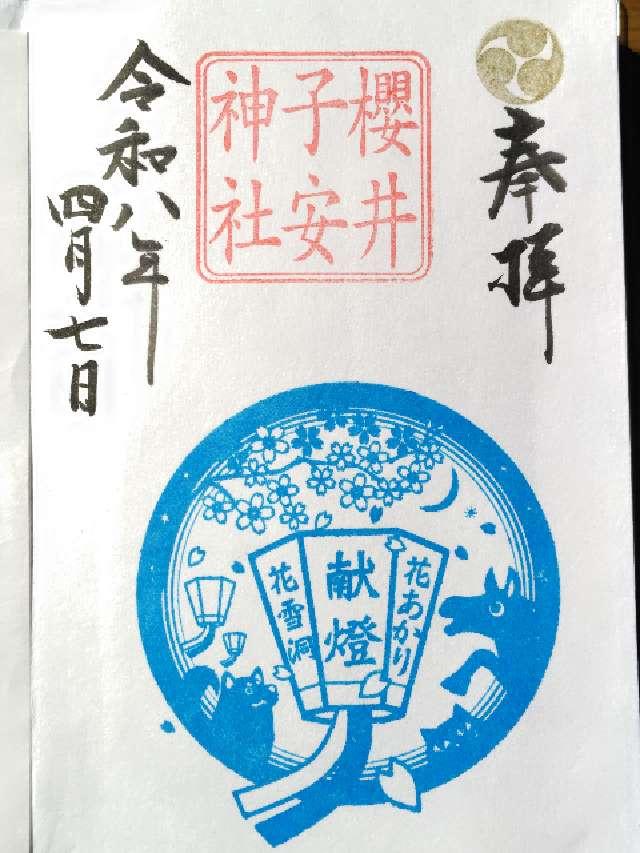 奉拝
櫻井
子安
神社
令和八年
四月七日
花あかり
献燈
花雪洞